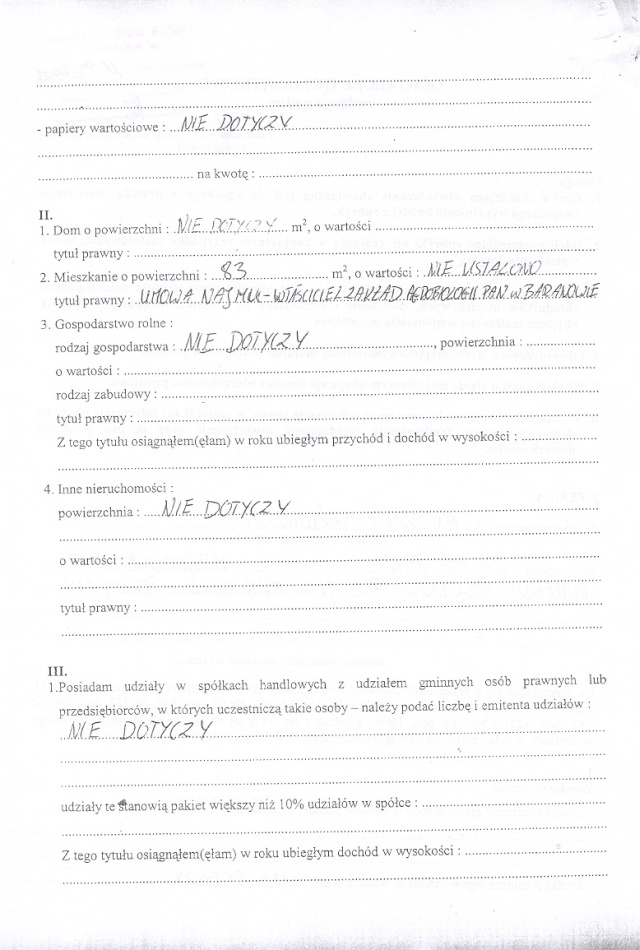 - papiery wartościowe : NIE DOTYCZY
na kwotę :
II.
1. Dom o powierzchni : NIE DOTYCZY m², o wartości
tytuł prawny :
2. Mieszkanie o powierzchni : 83 m², o wartości : NIE USTALONO
tytuł prawny : UMOWA NAJMU - WŁAŚCICIEL ZAKŁAD AGROBIOLOGII PAN W BARANOWIE
3. Gospodarstwo rolne :
rodzaj gospodarstwa : NIE DOTYCZY, powierzchnia :
o wartości :
rodzaj zabudowy :
tytuł prawny :
Z tego tytułu osiągnąłem(ęłam) w roku ubiegłym przychód i dochód w wysokości :
4. Inne nieruchomości :
powierzchnia : NIE DOTYCZY
o wartości :
tytuł prawny :
III.
1.Posiadam udziały w spółkach handlowych z udziałem gminnych osób prawnych lub
przedsiębiorców, w których uczestniczą takie osoby – należy podać liczbę i emitenta udziałów :
NIE DOTYCZY
udziały te stanowią pakiet większy niż 10% udziałów w spółce :
Z tego tytułu osiągnąłem(ęłam) w roku ubiegłym dochód w wysokości :